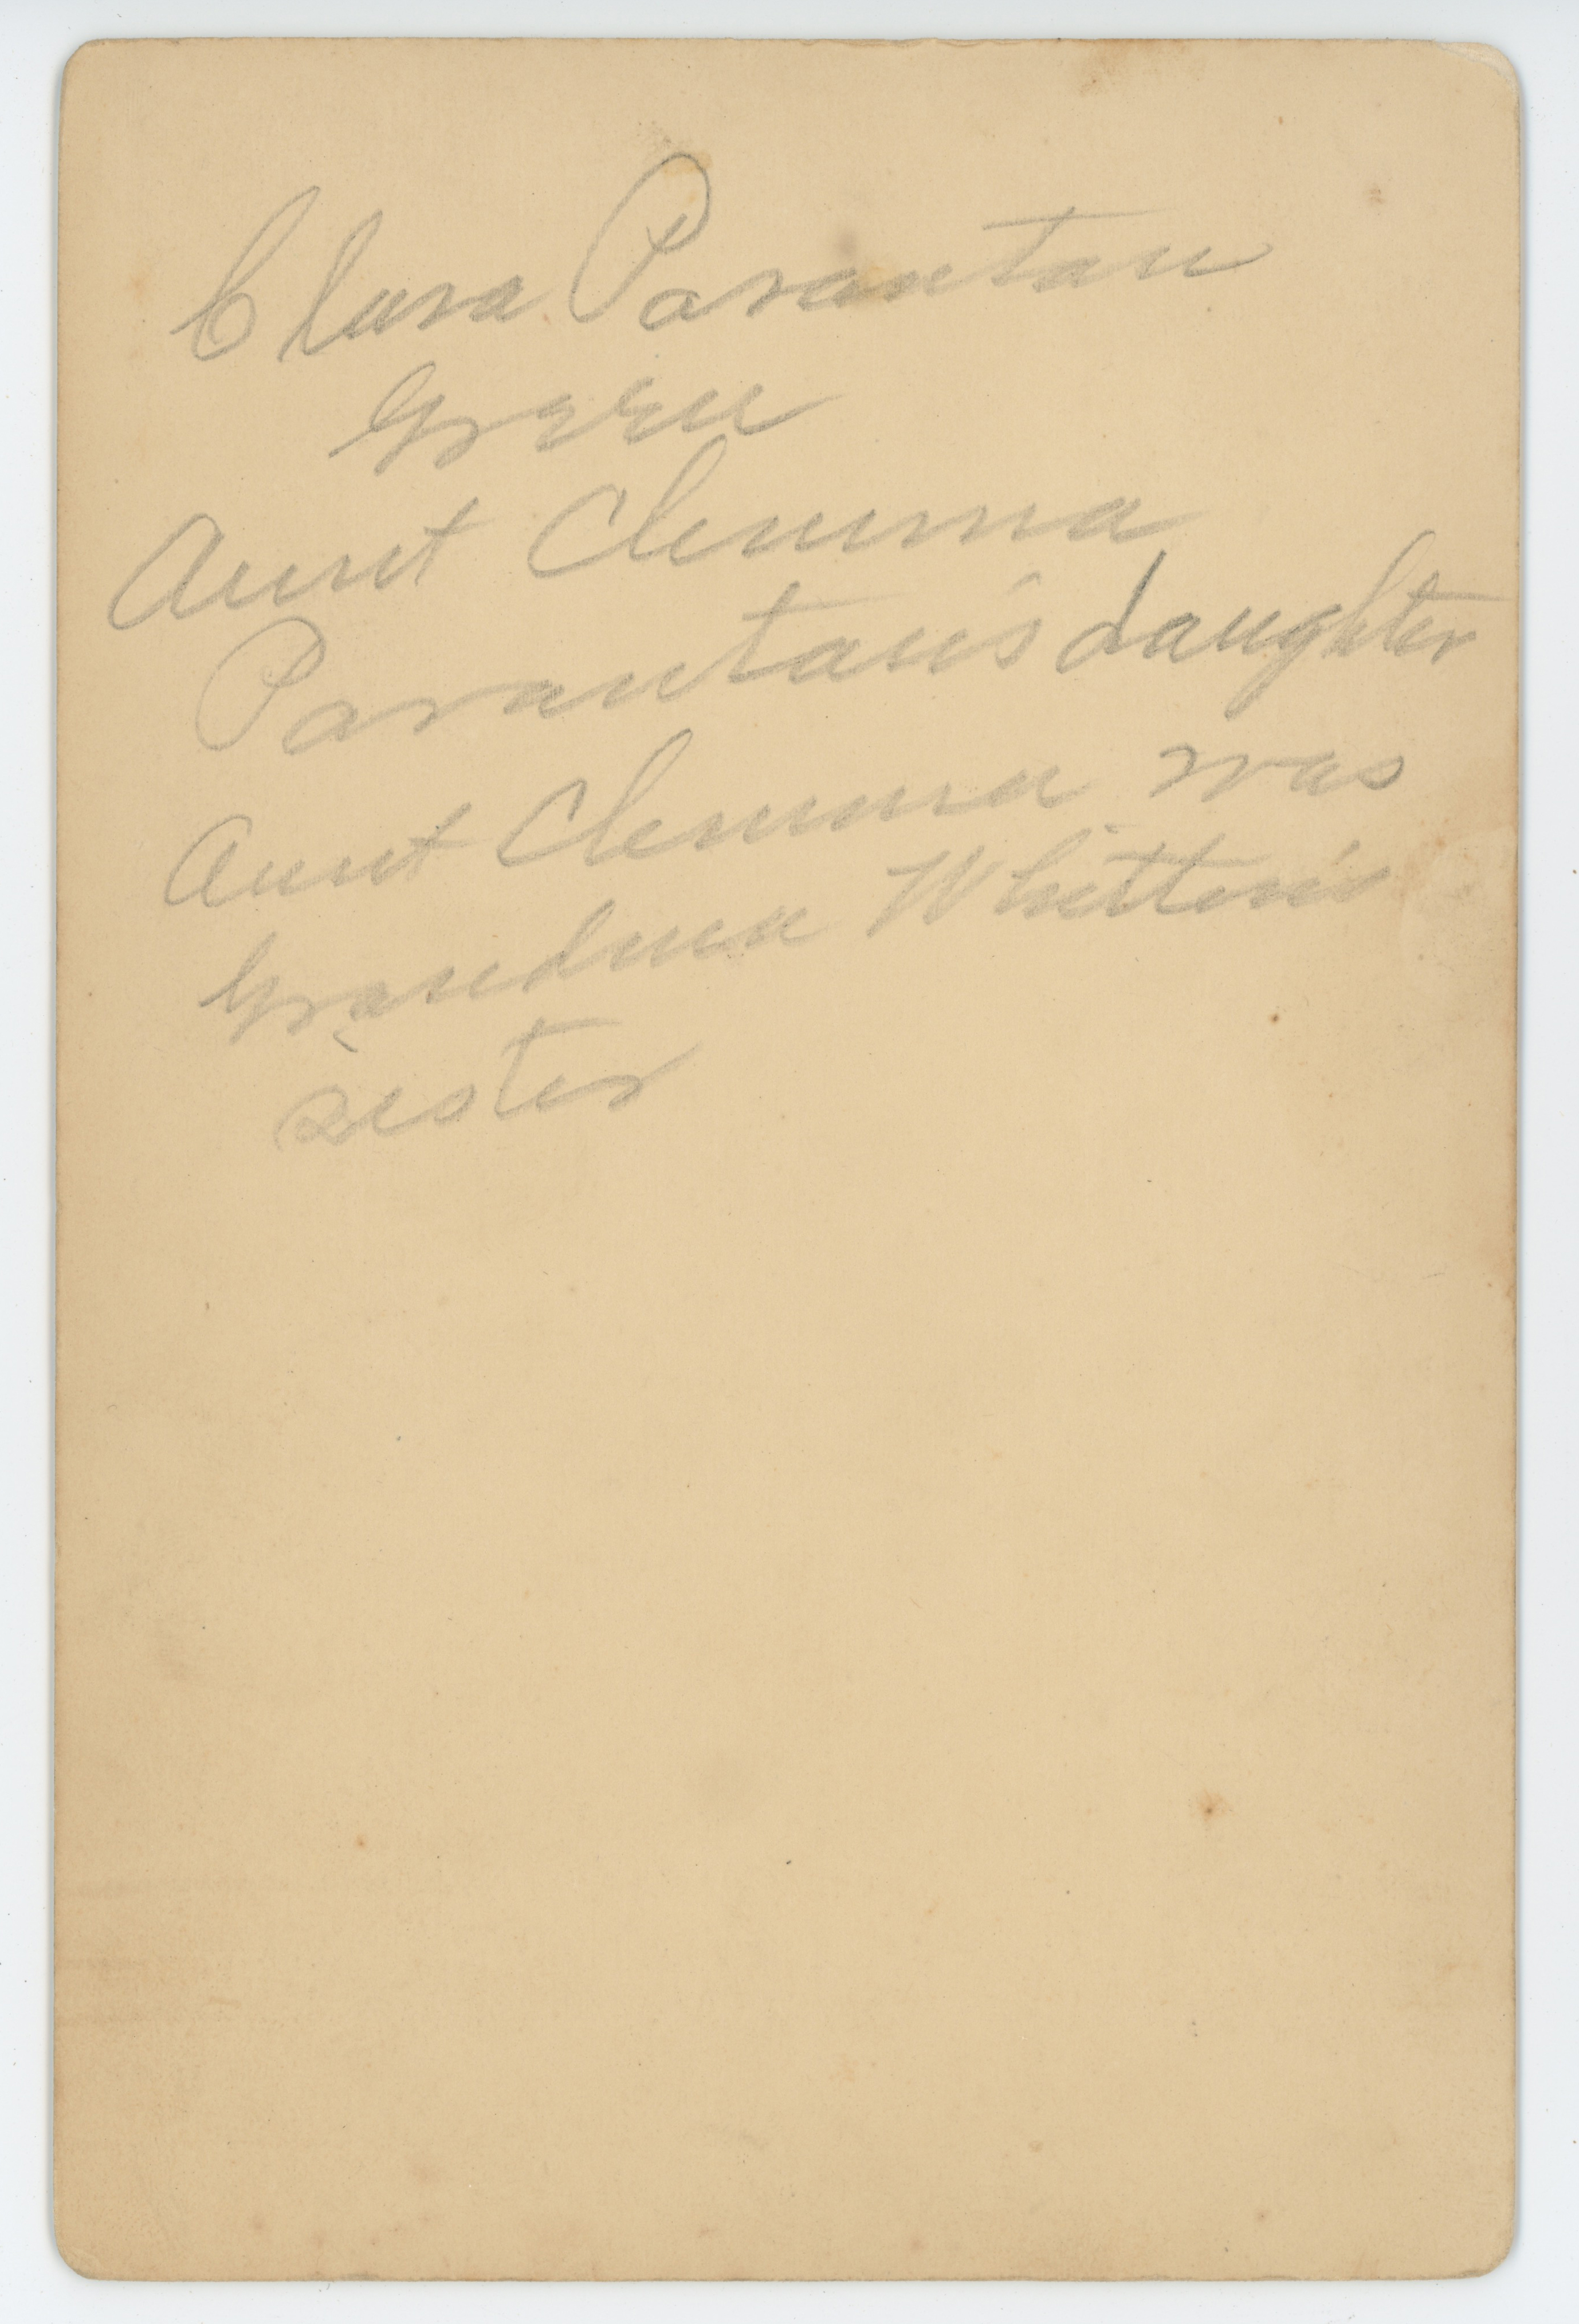 Clara Parantau
Green
Aunt Clemma
Parantau's daughter
Aunt Clemma was
Grandma Whitten's
sister